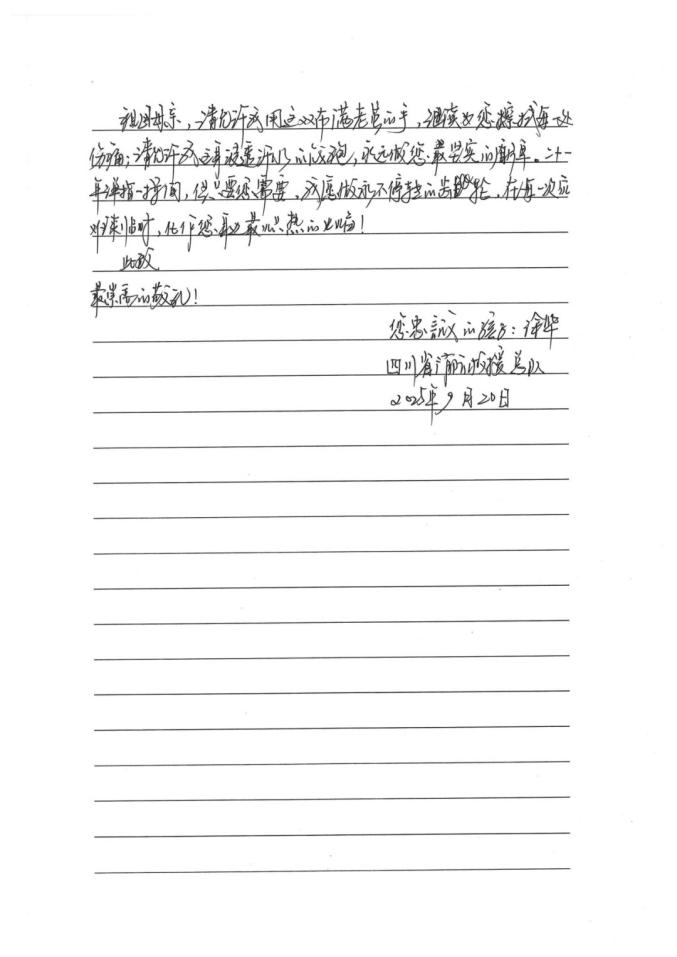 祖国母亲，请允许我用这双布满老茧的手，继续为您擦拭每一处
伤痛；请允许我这身浸透汗水的战袍，永远做您最坚实的盾牌。二十一
年弹指一挥间，但只要您需要，我愿做永不停转的齿轮，在每一次灾
难来临时，化作您身边最炽热的
此致
最崇高的敬礼！
您忠诚的孩子：徐华
四川省消防救援总队
2025年9月20日